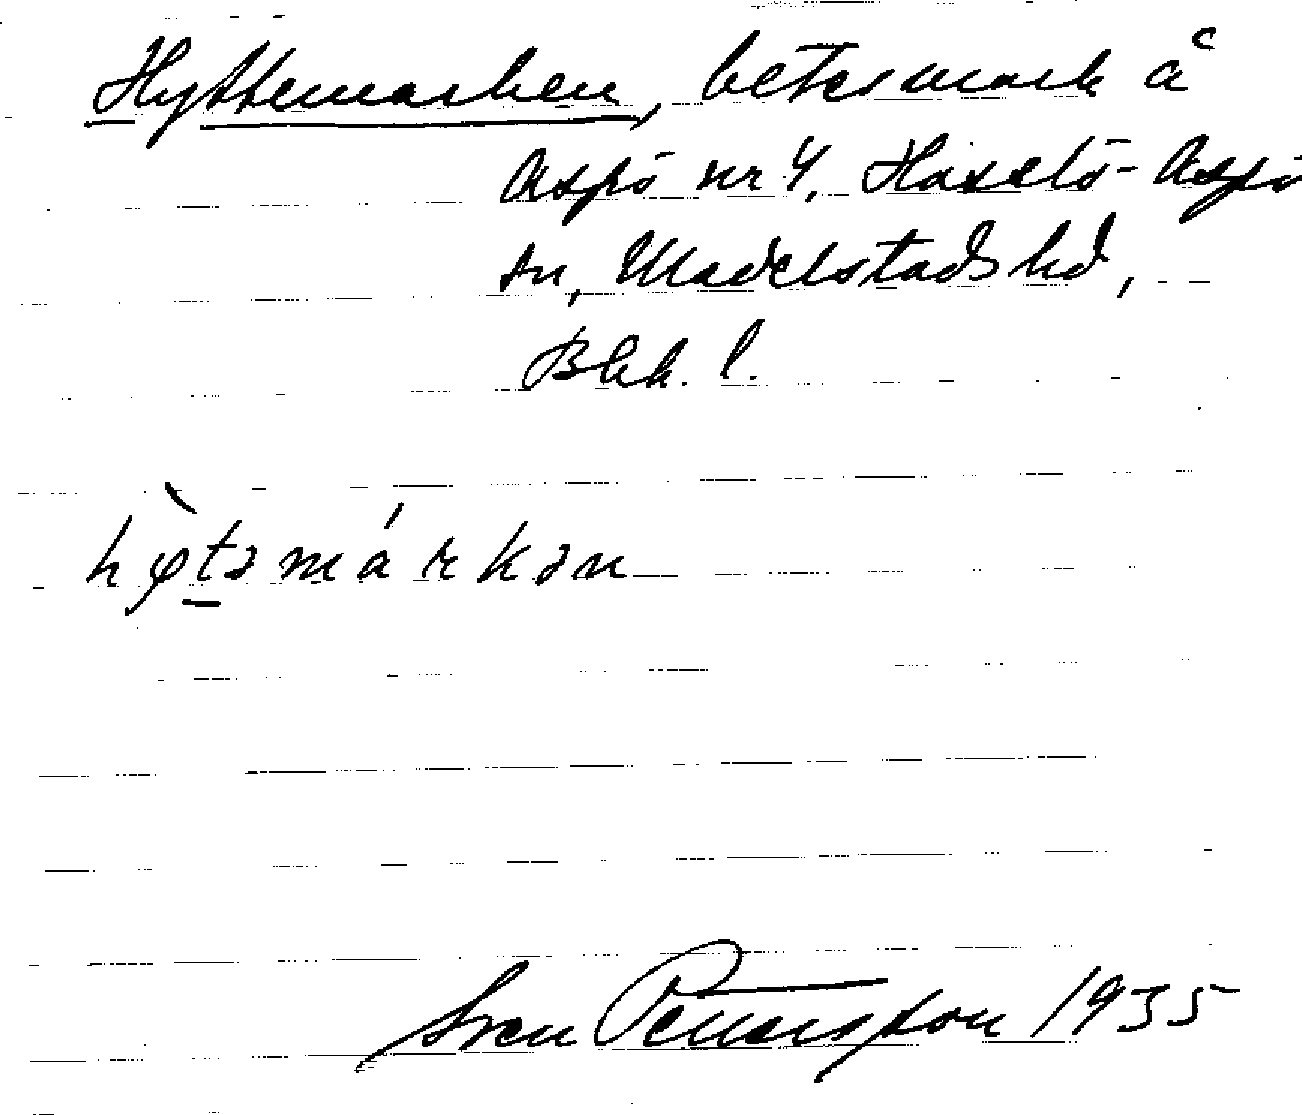 Hyttemarken, betesmark å
Aspö nr 4, Hasslö-Aspö
sn, Medelstads hd,
Blek. l.
Sven Pettersson 1935